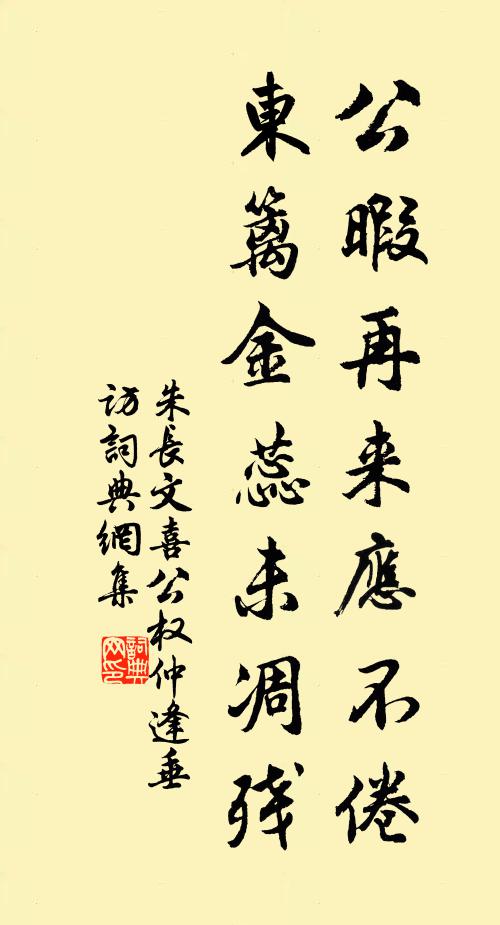 公暇再来應不倦
東籬金蕊未凋残
朱長文喜公权仲逢垂
访詞典網集
詞典網印